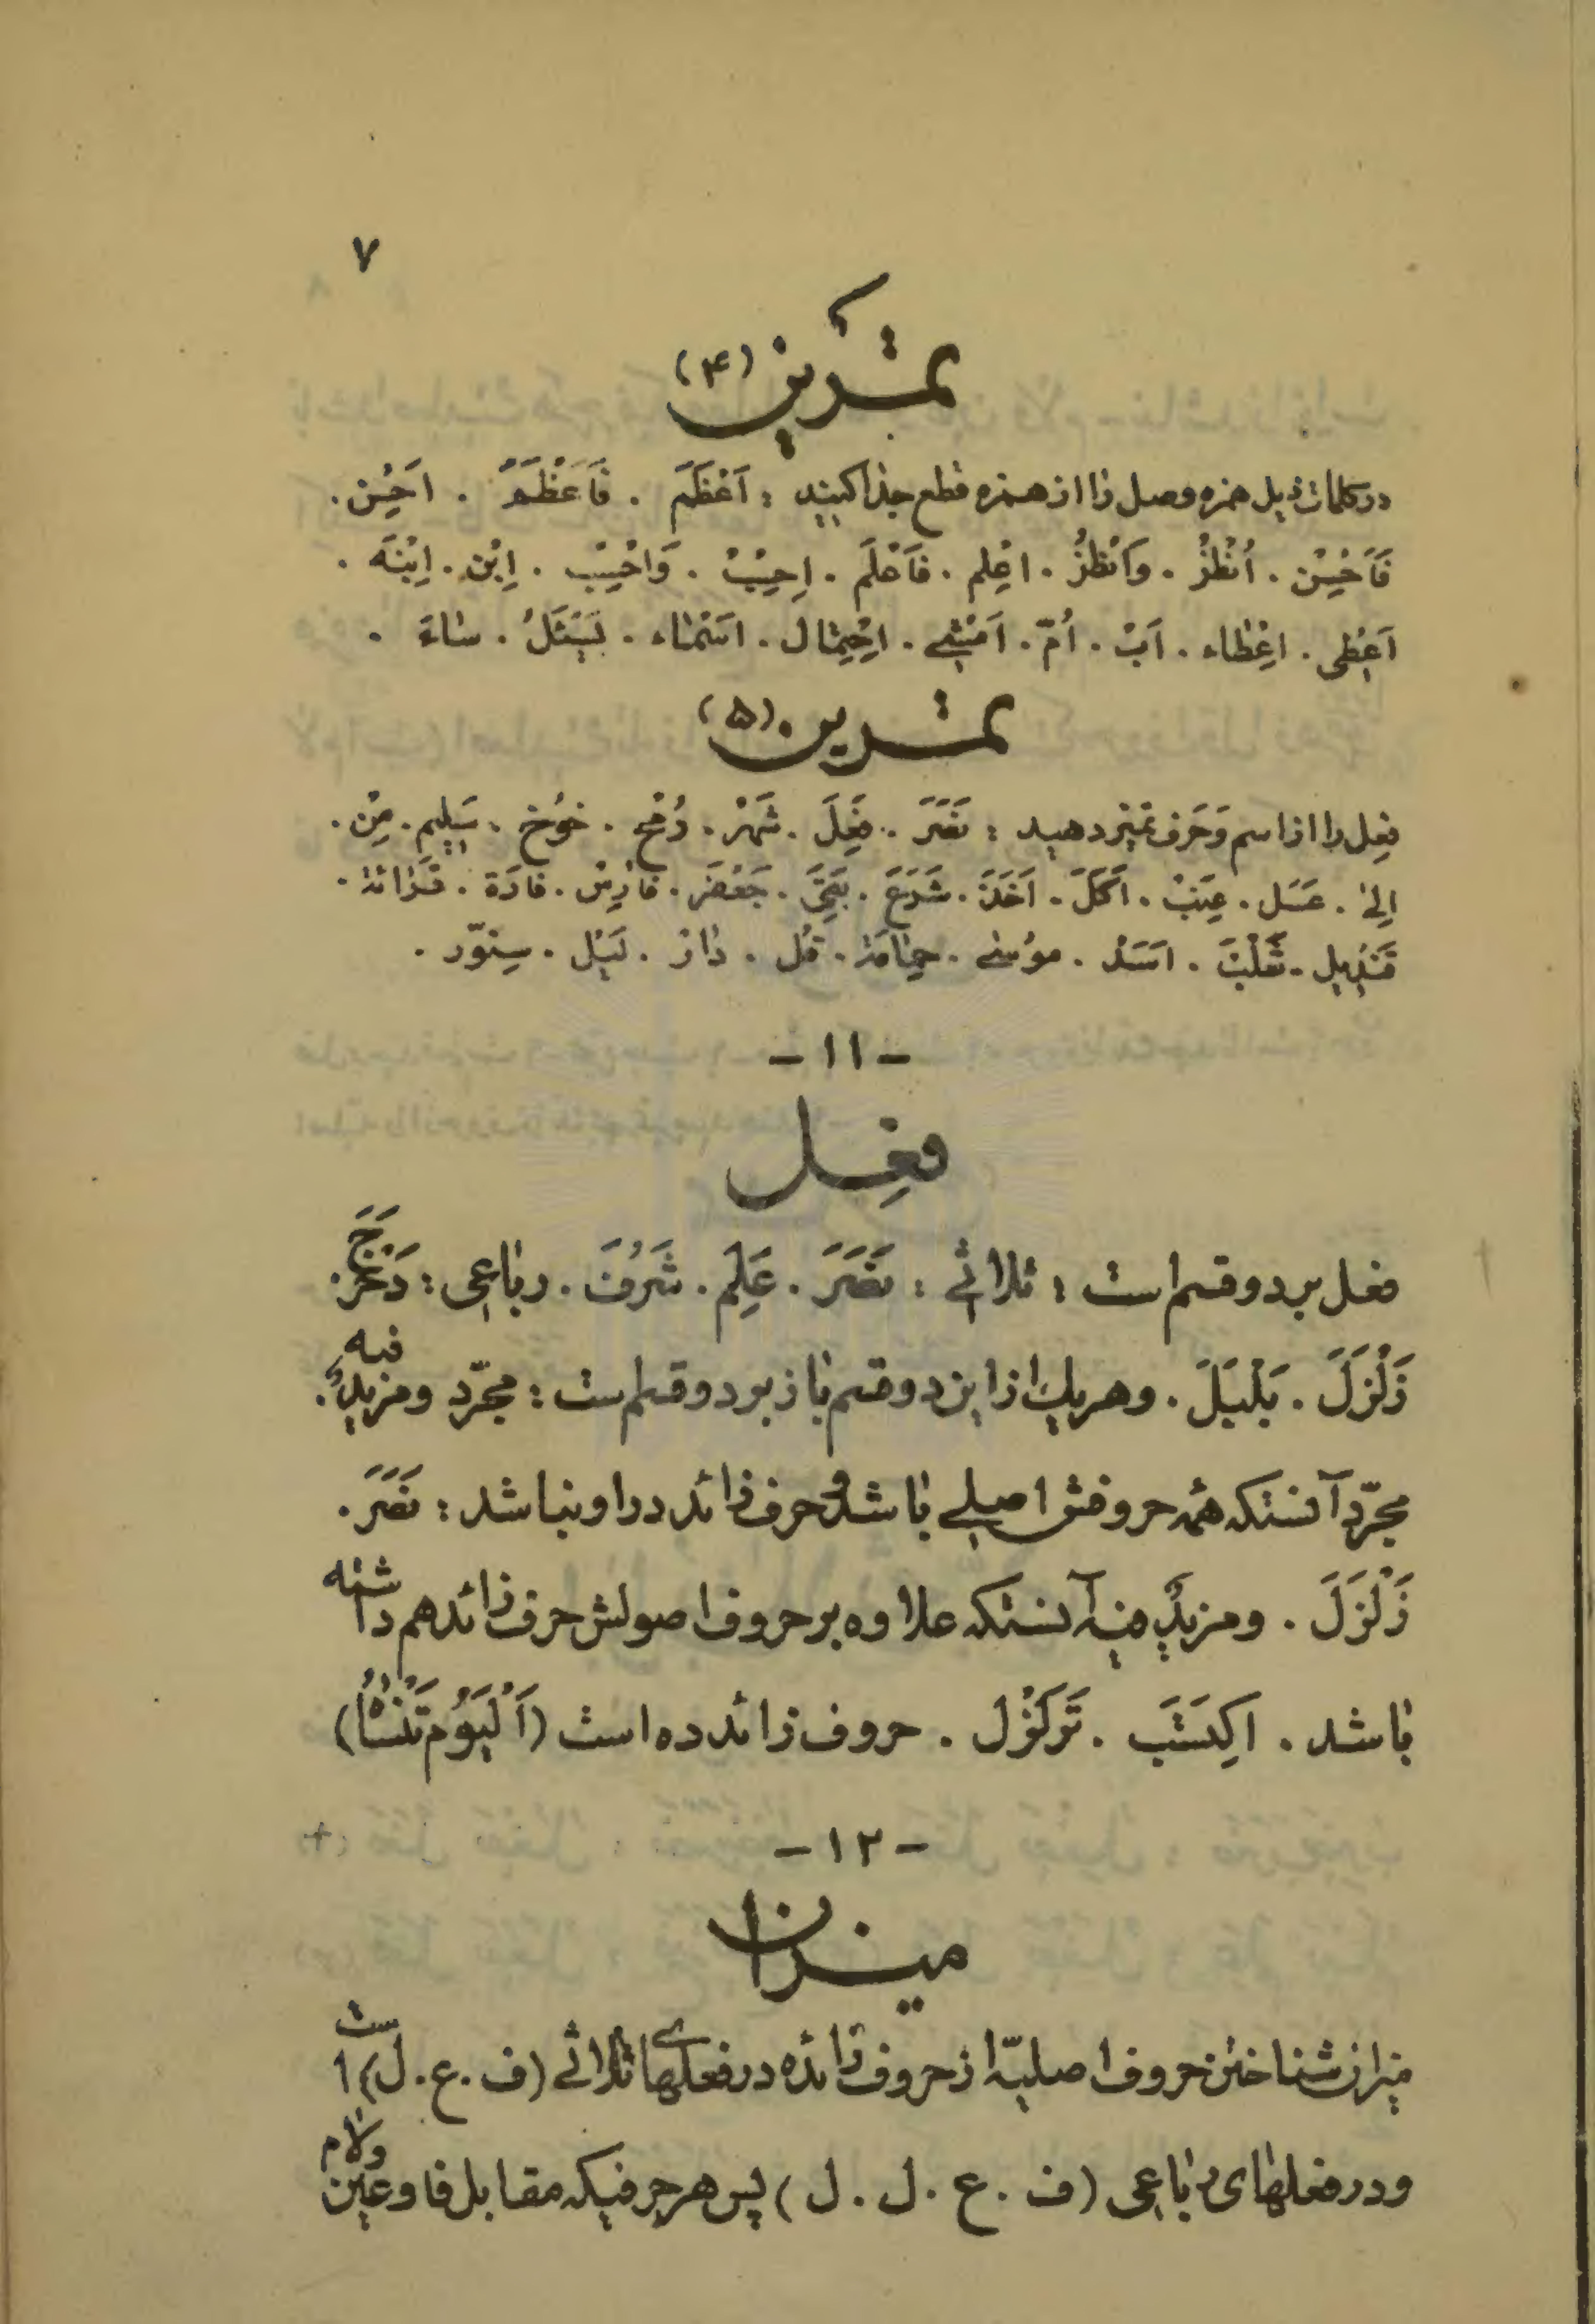 ۷
تمرین (۴)
در کلمات ذیل همزه وصل را از همزه قطع جدا کنید : اَعْظَمَ . فَاَعْظَمَ . اَحْسِن .
فَاَحْسِنْ . اُنْظُرْ . وَانْظُرْ . اعْلِم . فَاَعْلَم . اِحْسِبْ . وَاحْسِبْ . اِبْن . اِبْنَه .
اَعْطی . اِعْطاء . اَبْ . اُمّ . اَمْشی . اِحْتِمال . اَسْماء . یَسْئَلُ . شاءَ .
تمرین (۵)
فعل را از اسم و حَرف تمیز دهید : نَصَرَ . فَعِلَ . شَهْر . رُمْح . خوُخ . سَلِیم . مِنْ .
اِلیٰ . عَسَل . عِنَبْ . اَکَلَ . اَخَذَ . شَرَعَ . بَقِیَ . جَعْفَر . فارِسْ . فارَة .
قَنْدیل . ثَعْلَبْ . اَسَدْ . موُسی . حِمامَة . قُل . دارْ . لَیْل . سِنوّر .
- ۱۱ -
فعل
فعل بر دو قسم است : ثلاثی : نَصَرَ . عَلِمَ . شَرُفَ . رباعی : دَحْرَجَ .
زَلْزَلَ . بَلْبَلَ . و هر یک از این دو قسم باز بر دو قسم است : مجرّد و مزیدٌ فیه .
مجرّد آنستکه همه حروفش اصلی باشد و حرف زائد در او نباشد : نَصَرَ .
زَلْزَلَ . و مزیدٌ فیه آنستکه علاوه بر حروف اصولش حرف زائد هم داشته
باشد . اکِتَسَبَ . تَزَلْزَل . حروف زائد ده است (اَلْیَوُم تَنْسٰاُ)
- ۱۲ -
میزان
میزان شناختن حروف اصلیّه از حروف زائده در فعلهای ثلاثی (ف . ع . ل) است
و در فعلهای رباعی (ف . ع . ل . ل) پس هر حرفیکه مقابل فا و عین و لام